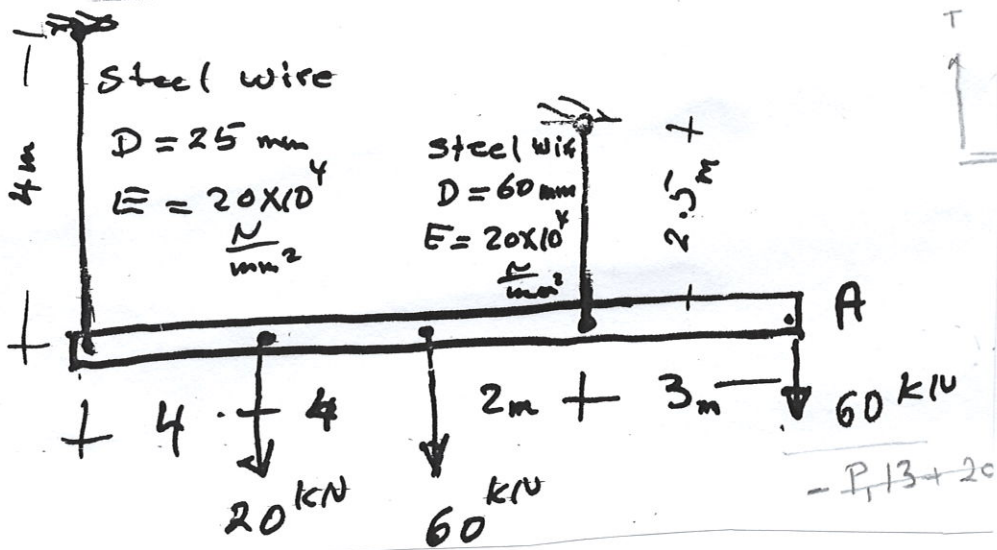 4m
Steel wire
D = 25 mm
E = 20×10⁴
N/mm²
steel wir
D = 60 mm
E = 20×10⁴
N/mm²
2.5m
T
A
4
4
2m
3m
20 kN
60 kN
60 kN
- P₁13 + 20